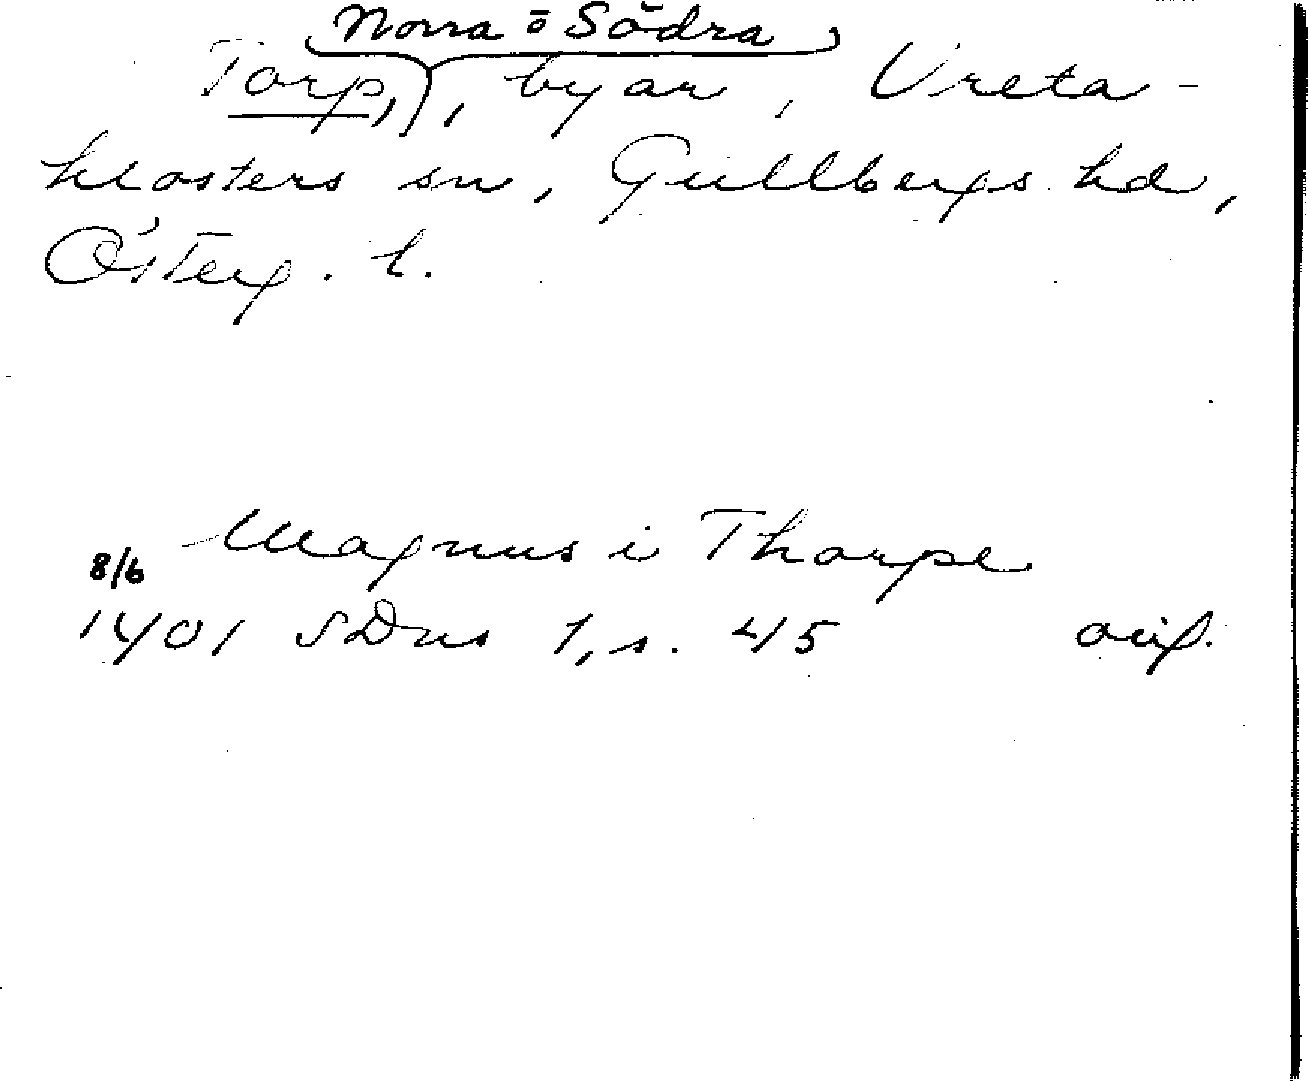 Norra o Södra
Torp, , byar, Vreta-
klosters sn, Gullbergs hd,
Österg. l.
Magnus i Thorpe
8/6
1401 SDns 1, s. 45 orig.